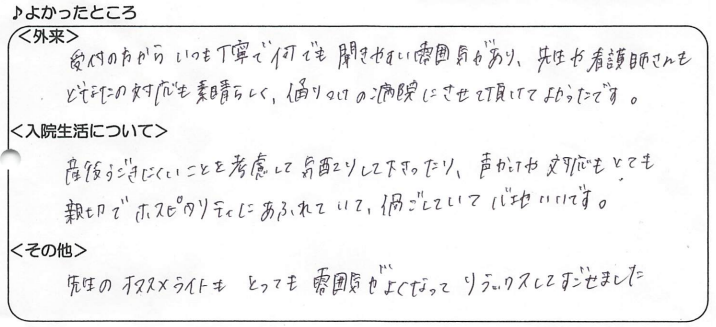 ♪よかったところ
<外来>
受付の方から いつも丁寧で何でも聞きやすい雰囲気があり、先生や看護師さんも
どなたの対応も素晴らしく、かかりつけの病院にさせて頂けてよかったです。
<入院生活について>
産後うごきにくいことを考慮して気配りして下さったり、声かけや対応もとても
親切でホスピタリティにあふれていて、過ごしていて心地いいです。
<その他>
先生のオススメライトも とっても雰囲気がよくなって リラックスしてすごせました